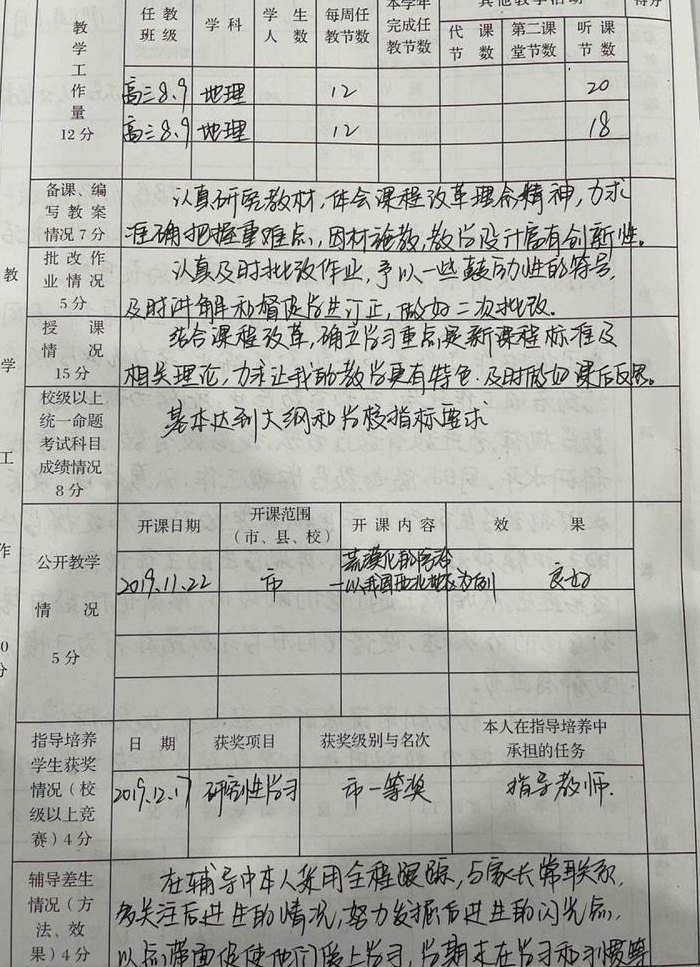 任教 学科 学生 每周任 本学年 其他教学活动 得分
班级 人数 教节数 完成任 代课 第二课 听课
教节数 节数 堂节数 节数
教学工作量 12分
高三8、9 地理 12 20
高三8、9 地理 12 18
备课、编
写教案
情况7分
认真研究教材，体会课程改革理念精神，力求
准确把握重难点，因材施教，教学设计富有创新性。
批改作
业情况
5分
认真及时批改作业，予以一些鼓励性的符号，
及时讲解和督促学生订正，做好二次批改。
授课
情况
15分
结合课程改革，确立学习重点是新课程标准及
相关理论，力求让我的教学更有特色，及时做好课后反思。
校级以上
统一命题
考试科目
成绩情况
8分
基本达到大纲和学校指标要求
公开教学
情况
5分
开课日期 开课范围（市、县、校） 开课内容 效果
2019.11.22 市 荒漠化的防治 良好
—以我国西北地区为例
指导培养
学生获奖
情况（校
级以上竞
赛）4分
日期 获奖项目 获奖级别与名次 本人在指导培养中
承担的任务
2019.12.17 研究性学习 市一等奖 指导教师.
辅导差生
情况（方
法、效
果）4分
在辅导中本人采用全程跟踪，与家长常联系，
多关注后进生的情况，努力发掘后进生的闪光点，
以点带面促使他们爱上学习，学期末在学习和习惯等
教
学
工
作
0
分